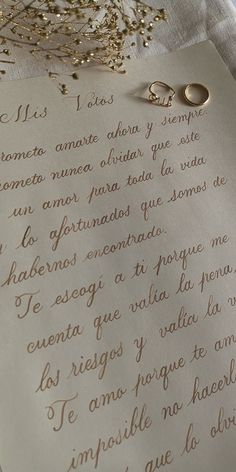 Mis Votos
rometo amarte ahora y siempre.
ometo nunca olvidar que este
un amor para toda la vida
y lo afortunados que somos de
habernos encontrado.
Te escogí a ti porque me
cuenta que valía la pena,
los riesgos y valía la v
Te amo porque te am
imposible no hacerl
que lo olvi